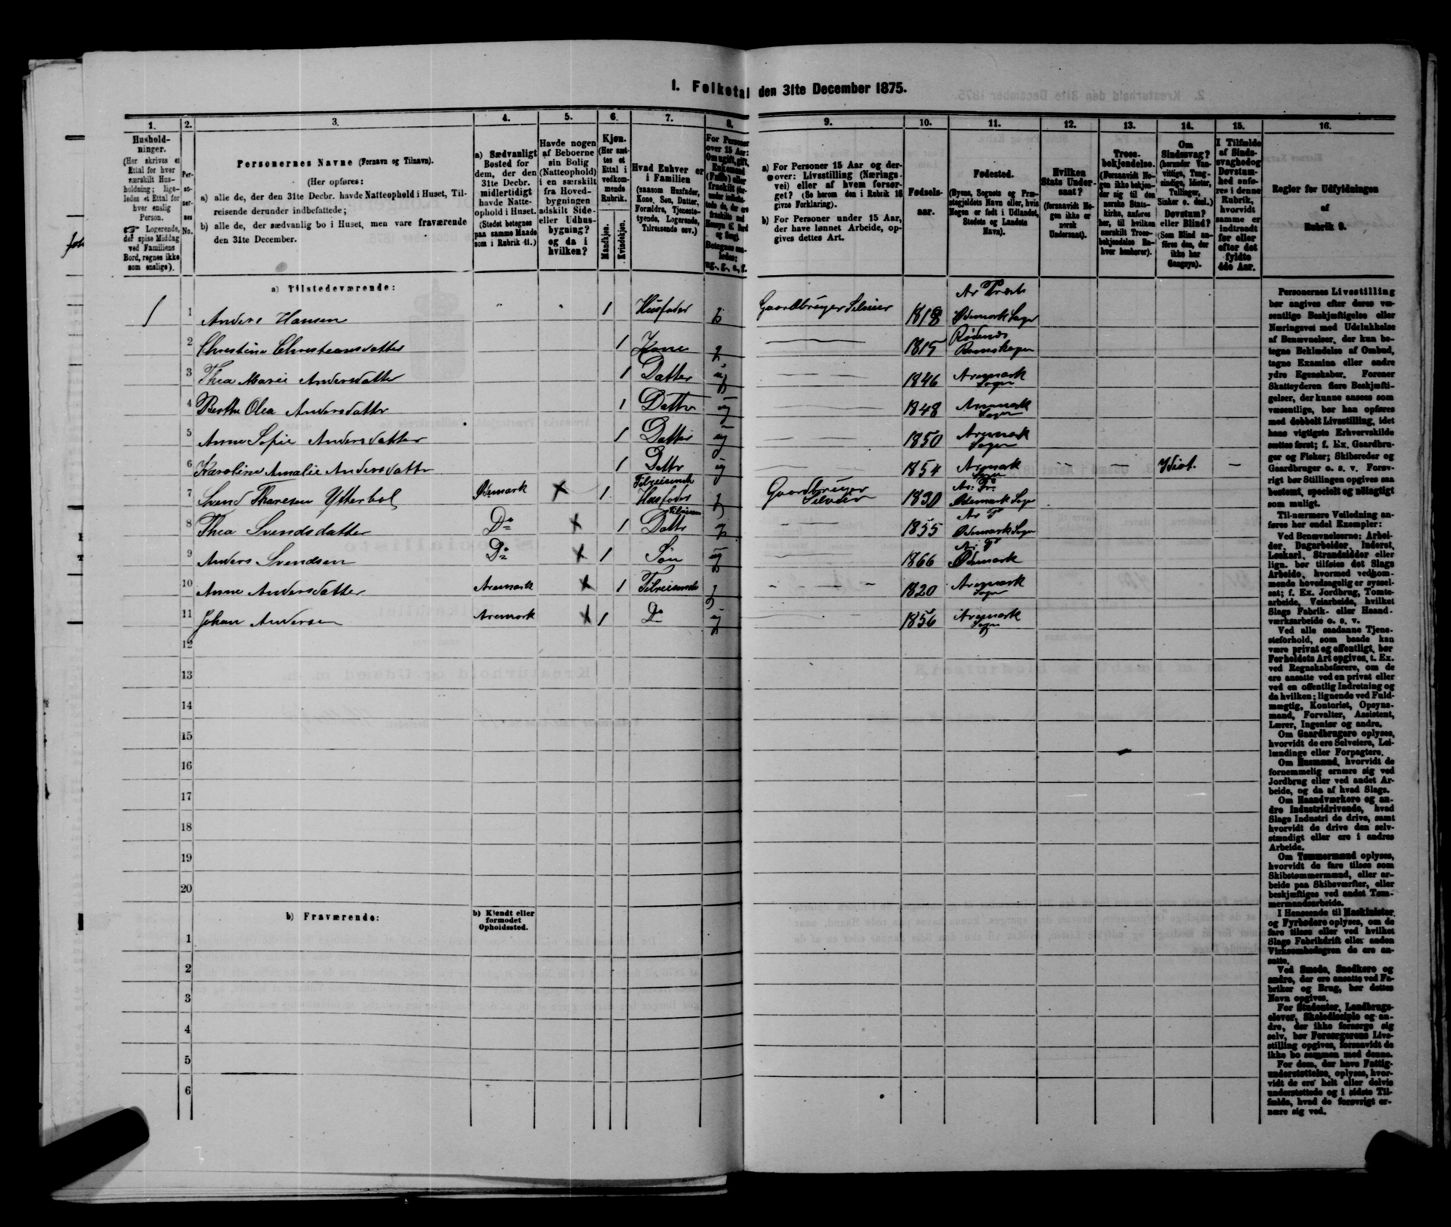 I. Folketal den 31te December 1875.
1.
Hushold-
ninger.
(Her skrives et
Ettal for hver
særskilt Hus-
holdning; lige-
ledes et Ettal for
hver enslig
Person.
Logerende,
der spise Middag
ved Familiens
Bord, regnes ikke
som enslige).
2.
Per-
so-
ner-
nes
No.
3.
Personernes Navne (Fornavn og Tilnavn).
(Her opføres:
a) alle de, der den 31te Decbr. havde Natteophold i Huset, Til-
reisende derunder indbefattede;
b) alle de, der sædvanlig bo i Huset, men vare fraværende
den 31te December.
4.
a) Sædvanligt
Bosted for
dem, der den
31te Decbr.
midlertidigt
havde Natte-
ophold i Huset.
(Stedet betegnes
paa samme Maade
som i Rubrik 11.)
5.
Havde nogen
af Beboerne
sin Bolig
(Natteophold)
i en særskilt
fra Hoved-
bygningen
adskilt Side-
eller Udhus-
bygning?
og da i
hvilken?
6.
Kjøn.
(Her sæt-
tes et
Ettal i
vedkom-
mende
Rubrik.
Mandkjøn.
Kvindekjøn.
7.
Hvad Enhver er
i Familien
(saasom Husfader,
Kone, Søn, Datter,
Forældre, Tjeneste-
tyende, Logerende,
Tilreisende osv.)
8.
For Personer
over 15 Aar:
9.
a) For Personer 15 Aar og der-
over: Livsstilling (Nærings-
vei) eller af hvem forsør-
get? (Se herom den i Rubrik 16
givne Forklaring).
b) For Personer under 15 Aar,
der have lønnet Arbeide, op-
gives dettes Art.
10.
Fødsels-
aar.
11.
Fødested.
(Byens, Sognets og Præ-
stegjeldets Navn eller, hvis
Nogen er født i Udlandet,
Stedets og Landets
Navn).
12.
Hvilken
Stats Under-
saat?
(forsaavidt No-
gen ikke er
norsk
Undersaat).
13.
Troes-
bekjendelse.
(Forsaavidt No-
gen ikke bekjen-
der sig til den
norske Stats-
kirke, anføres
her, til hvilken
særskilt Troes-
bekjendelse En-
hver henhører).
14.
Om
Sindssvag?
(herunder Van-
vittige, Tung-
sindige, Idioter,
Tullinger,
Sinker o. desl.)
Døvstum?
eller Blind?
(Som Blind an-
føres den, der
ikke har
Gangsyn).
15.
I Tilfælde
af Sinds-
svaghed og
Døvstum-
hed anfø-
res i denne
Rubrik,
hvorvidt
samme er
indtraadt
før eller
efter det
fyldte
4de Aar.
16.
Regler for Udfyldningen
af
Rubrik 9.
a) Tilstedeværende:
1 1 Anders Hansen 1 Husfader g Gaardbruger Selveier 1818 Ødemark Sogn
2 Christine Christiansdatter 1 Kone g 1815 Rødenæs
3 Thea Marie Andersdatter 1 Datter ug 1846 Aremark Sogn
4 Berthe Olea Andersdattr 1 Dattr ug 1848 Aremark Sogn
5 Anne Sofie Andersdatter 1 Datter ug 1850 Aremark Sogn
6 Karoline Amalie Andersdattr 1 Dattr ug 1854 Aremark Sogn Idiot. –
7 Svend Thoresen Ytterbøl Ødemark × 1 Tilreisende Husfader g Gaardbruger Selveier 1820 Ødemark Sogn
8 Thea Svendsdatter Do × 1 Tilreisen Dattr 1855 Ødemark Sogn
9 Anders Svendsen Do × 1 Søn ug 1866 Ødemark
10 Anne Andersdatter Aremark × 1 Tilreisende 1820 Aremark Sogn
11 Johan Andersen Aremark × 1 Do ug 1856 Aremark Sogn
12
13
14
15
16
17
18
19
20
b) Fraværende:
b) Kjendt eller
formodet
Opholdssted.
1
2
3
4
5
6
Personernes Livsstilling
bør angives efter deres væ-
sentlige Beskjæftigelse eller
Næringsvei med Udelukkelse
af Benævnelser, der kun be-
tegne Beklædelse af Ombud,
tagne Examina eller andre
ydre Egenskaber. Forener
Skatteyderen flere Beskjæfti-
gelser, der kunne ansees som
væsentlige, bør han opføres
med dobbelt Livsstilling, idet
hans vigtigste Erhvervskilde
sættes først; f. Ex. Gaardbru-
ger og Fisker; Skibsreder og
Gaardbruger o. s. v. Forøv-
rigt bør Stillingen opgives saa
bestemt, specielt og nøiagtigt
som muligt.
Til nærmere Veiledning an-
føres her endel Exempler:
Ved Benævnelserne: Arbei-
der, Dagarbeider, Inderst,
Løskarl, Strandsidder eller
lign. bør tilføies det Slags
Arbeide, hvormed vedkom-
mende hovedsagelig er syssel-
sat; f. Ex. Jordbrug, Tomte-
arbeide, Veiarbeide, hvilket
Slags Fabrik- eller Haand-
værksarbeide o. s. v.
Ved alle saadanne Tjene-
steforhold, som baade kan
være privat og offentligt, bør
Forholdets Art opgives, t. Ex.
ved Regnskabsførere, om de
ere ansatte ved en privat eller
ved en offentlig Indretning og
da hvilken; lignende ved Fuld-
mægtig, Kontorist, Opsyns-
mand, Forvalter, Assistent,
Lærer, Ingeniør og andre.
Om Gaardbrugere oplyses,
hvorvidt de ere Selveiere, Lei-
lændinge eller Forpagtere.
Om Husmænd, hvorvidt de
fornemmelig ernære sig ved
Jordbrug eller ved andet Ar-
beide, og da af hvad Slags.
Om Haandværkere og an-
dre Industridrivende, hvad
Slags Industri de drive, samt
hvorvidt de drive den selv-
stændigt eller ere i andres
Arbeide.
Om Tømmermænd oplyses,
hvorvidt de fare tilsøs som
Skibstømmermænd, eller ar-
beide paa Skibsværfter, eller
beskjæftiges ved andet Tøm-
mermandsarbeide.
I Henseende til Maskinister
og Fyrbødere oplyses, om de
fare tilsøs eller ved hvilket
Slags Fabrikdrift eller anden
Virksomhedsgren de ere an-
satte.
Ved Smede, Snedkere og
andre, der ere ansatte ved Fa-
briker og Brug, bør dettes
Navn opgives.
For Studenter, Landbrugs-
elever, Skoledisciple og an-
dre, der ikke forsørge sig
selv, bør Forsørgerens Livs-
stilling opgives, forsaavidt de
ikke bo sammen med denne.
For dem, der have Fattig-
understøttelse, oplyses, hvor-
vidt de ere helt eller delvis
understøttede og i sidste Til-
fælde, hvad de forøvrigt er-
nære sig ved.